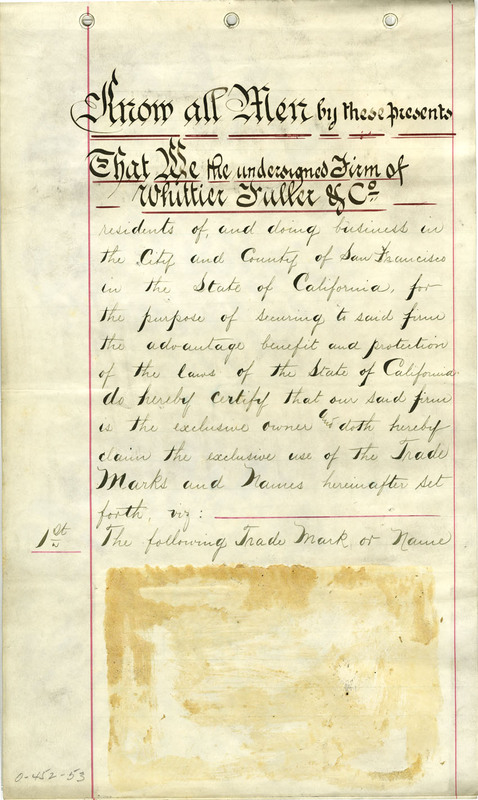 Know all Men by these presents
That We the undersigned Firm of
Whittier Fuller & Co.
residents of, and doing business in
the City and County of San Francisco
in the State of California, for
the purpose of securing to said firm
the advantage benefit and protection
of the laws of the State of California
do hereby certify that our said firm
is the exclusive owner and doth hereby
claim the exclusive use of the Trade
Marks and Names hereinafter set
forth, viz:
1st The following Trade Mark or Name
0-452-53